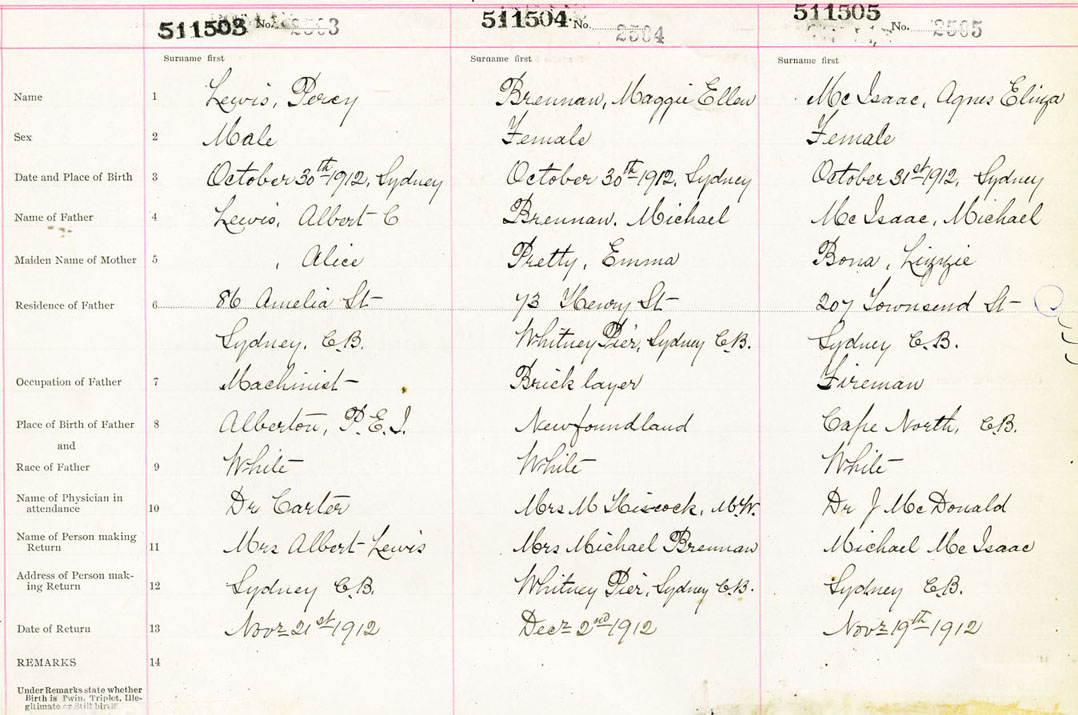 511503 No. 2503 511504 No. 2504 511505 No. 2505
Surname first Surname first Surname first
Name 1 Lewis, Percy Brennan, Maggie Ellen Mc Isaac, Agnes Eliza
Sex 2 Male Female Female
Date and Place of Birth 3 October 30th 1912, Sydney October 30th 1912, Sydney October 31st 1912, Sydney
Name of Father 4 Lewis, Albert C Brennan, Michael Mc Isaac, Michael
Maiden Name of Mother 5 , Alice Pretty, Emma Bona, Lizzie
Residence of Father 6 86 Amelia St 73 Henry St 207 Townsend St
Sydney, C.B. Whitney Pier, Sydney C.B. Sydney C.B.
Occupation of Father 7 Machinist Brick layer Fireman
Place of Birth of Father 8 Alberton, P.E.I. Newfoundland Cape North, C.B.
and
Race of Father 9 White White White
Name of Physician in
attendance 10 Dr Carter Mrs M Hiscock, M.W. Dr J McDonald
Name of Person making
Return 11 Mrs Albert Lewis Mrs Michael Brennan Michael Mc Isaac
Address of Person mak-
ing Return 12 Sydney C.B. Whitney Pier, Sydney C.B. Sydney C.B.
Date of Return 13 Novr 21st 1912 Decr 2nd 1912 Novr 19th 1912
REMARKS 14
Under Remarks state whether
Birth is Twin, Triplet, Ille-
gitimate or Still birth